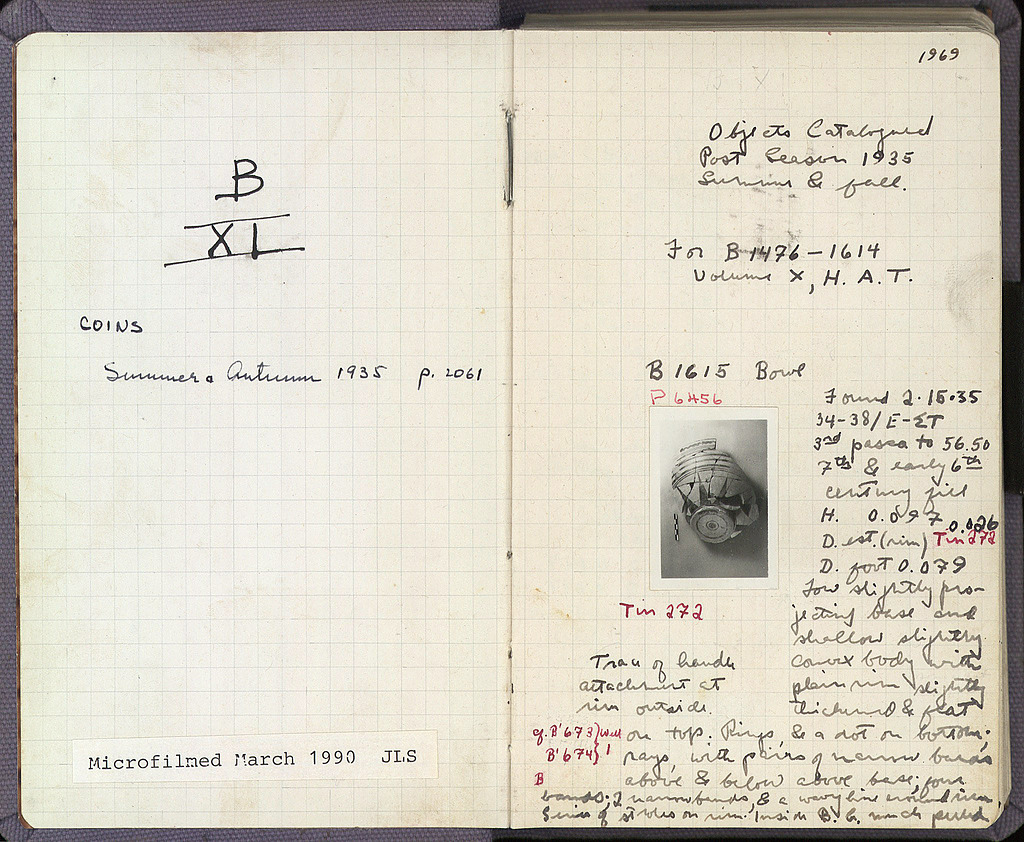 B
XL
COINS
Summer & Autumn 1935 p. 2061
Microfilmed March 1990 JLS
1969
Objects Catalogued
Post Season 1935
Summer & fall.
For B 1476 - 1614
Volume X, H. A. T.
B 1615 Bowl
P 6456
Found 2.15.35
34-38/ E-ΣΤ
3rd passa to 56.50
7th & early 6th
century fill
H. 0.097
0.026
D. est. (rim) Tin 272
D. foot 0.079
Low slightly pro-
jecting base and
shallow slightly
convex body with
plain rim slightly
thickened & flat
Tin 272
Trace of handle
attachment at
rim outside.
cf. B'673 } Well
B'674 } 1
B
on top. Rings & a dot on bottom;
rays, with pairs of narrow bands
above & below above base; four
bands; 2 narrow bands, & a wavy line around rim.
Series of strokes on rim. Inside B. G. much peeled